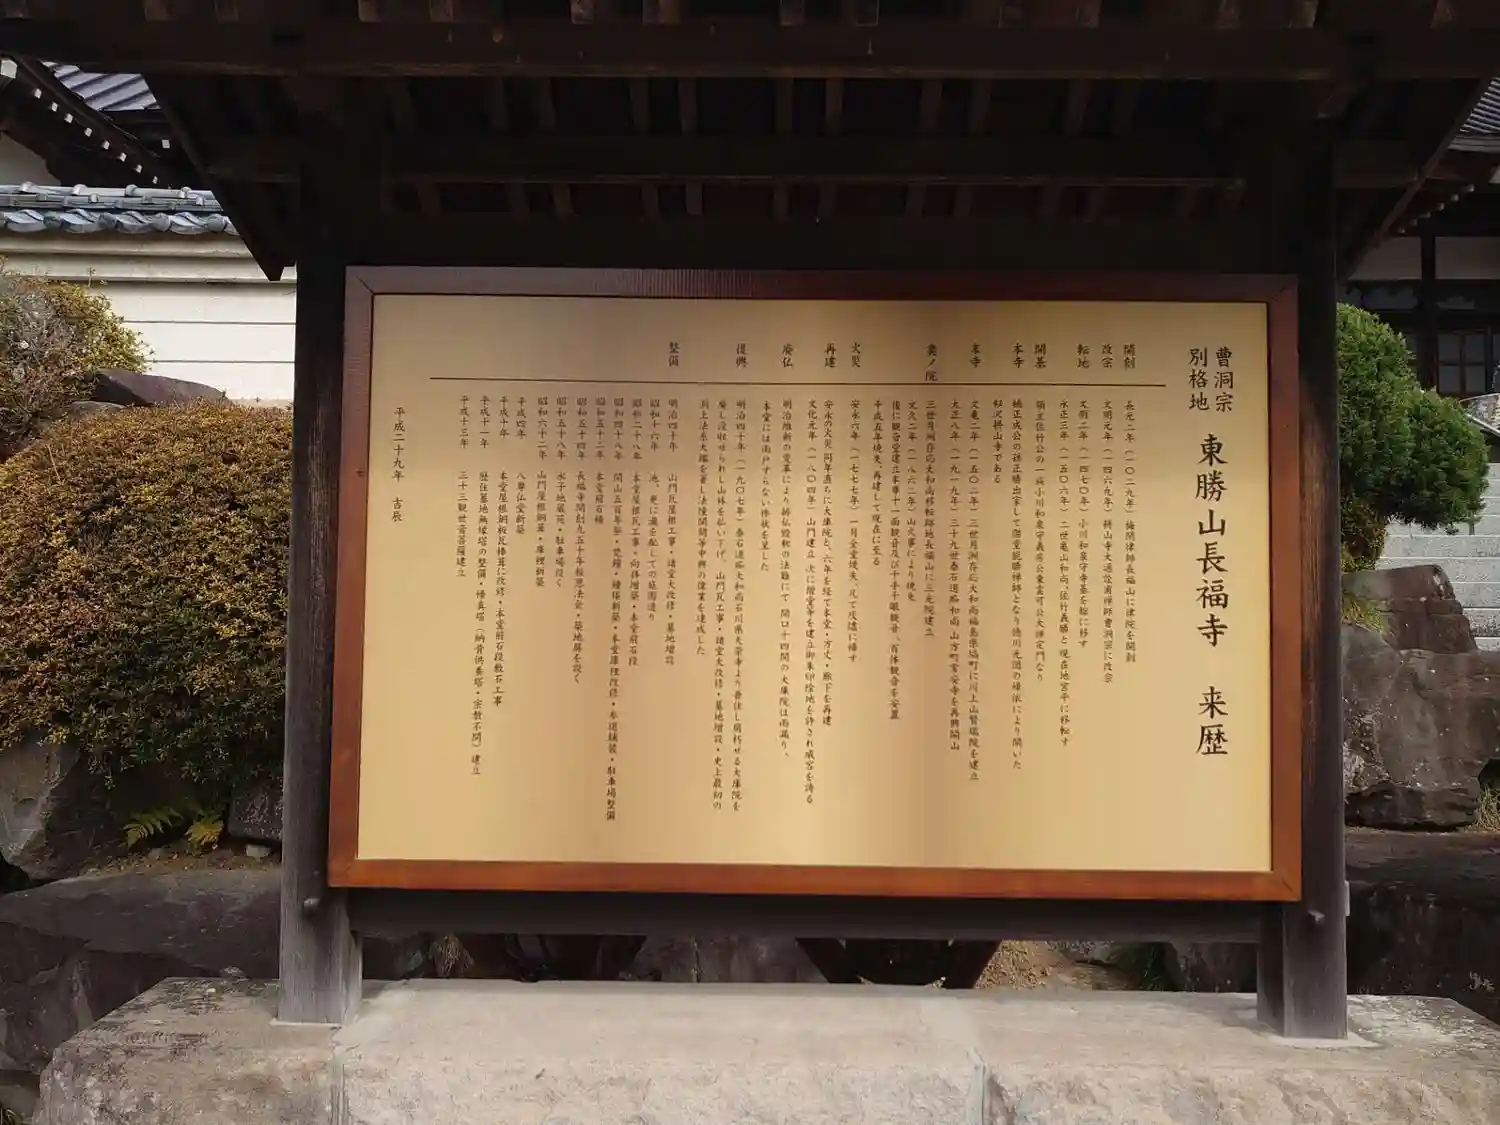 曹洞宗
別格地
東勝山長福寺 来歴
開創 長元二年(一〇二九年)梅閑律師長福山に律院を開創
改宗 文明元年(一四六九年)耕山寺大通訟甫禅師曹洞宗に改宗
転地 文明二年(一四七〇年)小川和泉守寺基を舘に移す
永正三年(一五〇六年)二世亀山和尚、佐竹義勝と現在地宮平に移転す
開基 領主佐竹公の一族小川和泉守義房公東雲可公大禅定門なり
本寺 補正成公の孫正勝出家して傑堂能勝禅師となり徳川光圀の帰依により開いた
耘沢耕山寺である
末寺 文亀二年(一五〇二年)三世月洲存応大和尚福島県塙町に川上山賢瑞院を建立
大正八年(一九一九年)三十九世泰石道瑞和尚山方町常安寺を再興開山
奥ノ院 三世月洲存応大和尚移転跡地長福山に三光院建立
文久二年(一八六二年)山火事により焼失
後に観音堂建立本尊十一面観音及び千手千眼観音、百体観音を安置
平成五年焼失、再建して現在に至る
火災 安永六年(一七七七年)一月全堂焼失、凡て灰燼に帰す
再建 安永の大災同年直ちに大庫院と、六年を経て本堂・方丈・廊下を再建
文化元年(一八〇四年)山門建立、次に禅堂等を建立御朱印除地を許され威容を誇る
廃仏 明治維新の変革により排仏毀釈の法難にて、開口十四間の大庫院は雨漏り、
本堂には雨戸すらない惨状を呈した
復興 明治四十年(一九〇七年)泰石道瑞大和尚石川県大栄寺より晋住し腐朽せる大庫院を
廃し没収せられし山林を払い下げ、山門瓦工事・諸堂大改修・墓地増設・史上最初の
洞上法系大鑑を著し法陵開闢等中興の偉業を達成した
整備 明治四十年 山門瓦屋根工事・諸堂大改修・墓地増設
昭和十六年 池、更に滝を配しての庭園造り
昭和二十八年 本堂屋根瓦工事・向拝増築・本堂前石段
昭和四十八年 開山五百年祭・梵鐘・鐘楼新築・本堂庫裡改修・参道舗装・駐車場整備
昭和五十二年 本堂前石橋
昭和五十四年 長福寺開創九五十年報恩法会・築地屏を設く
昭和五十八年 水子地蔵苑・駐車場設く
昭和六十二年 山門屋根銅葺・庫裡新築
平成四年 八尊仏堂新築
平成十年 本堂屋根銅板瓦棒葺に改修・本堂前石段敷石工事
平成十一年 歴住墓地無縁塔の整備・帰真塔(納骨供養塔・宗教不問)建立
平成十三年 三十三観世音菩薩建立
平成二十九年 吉辰